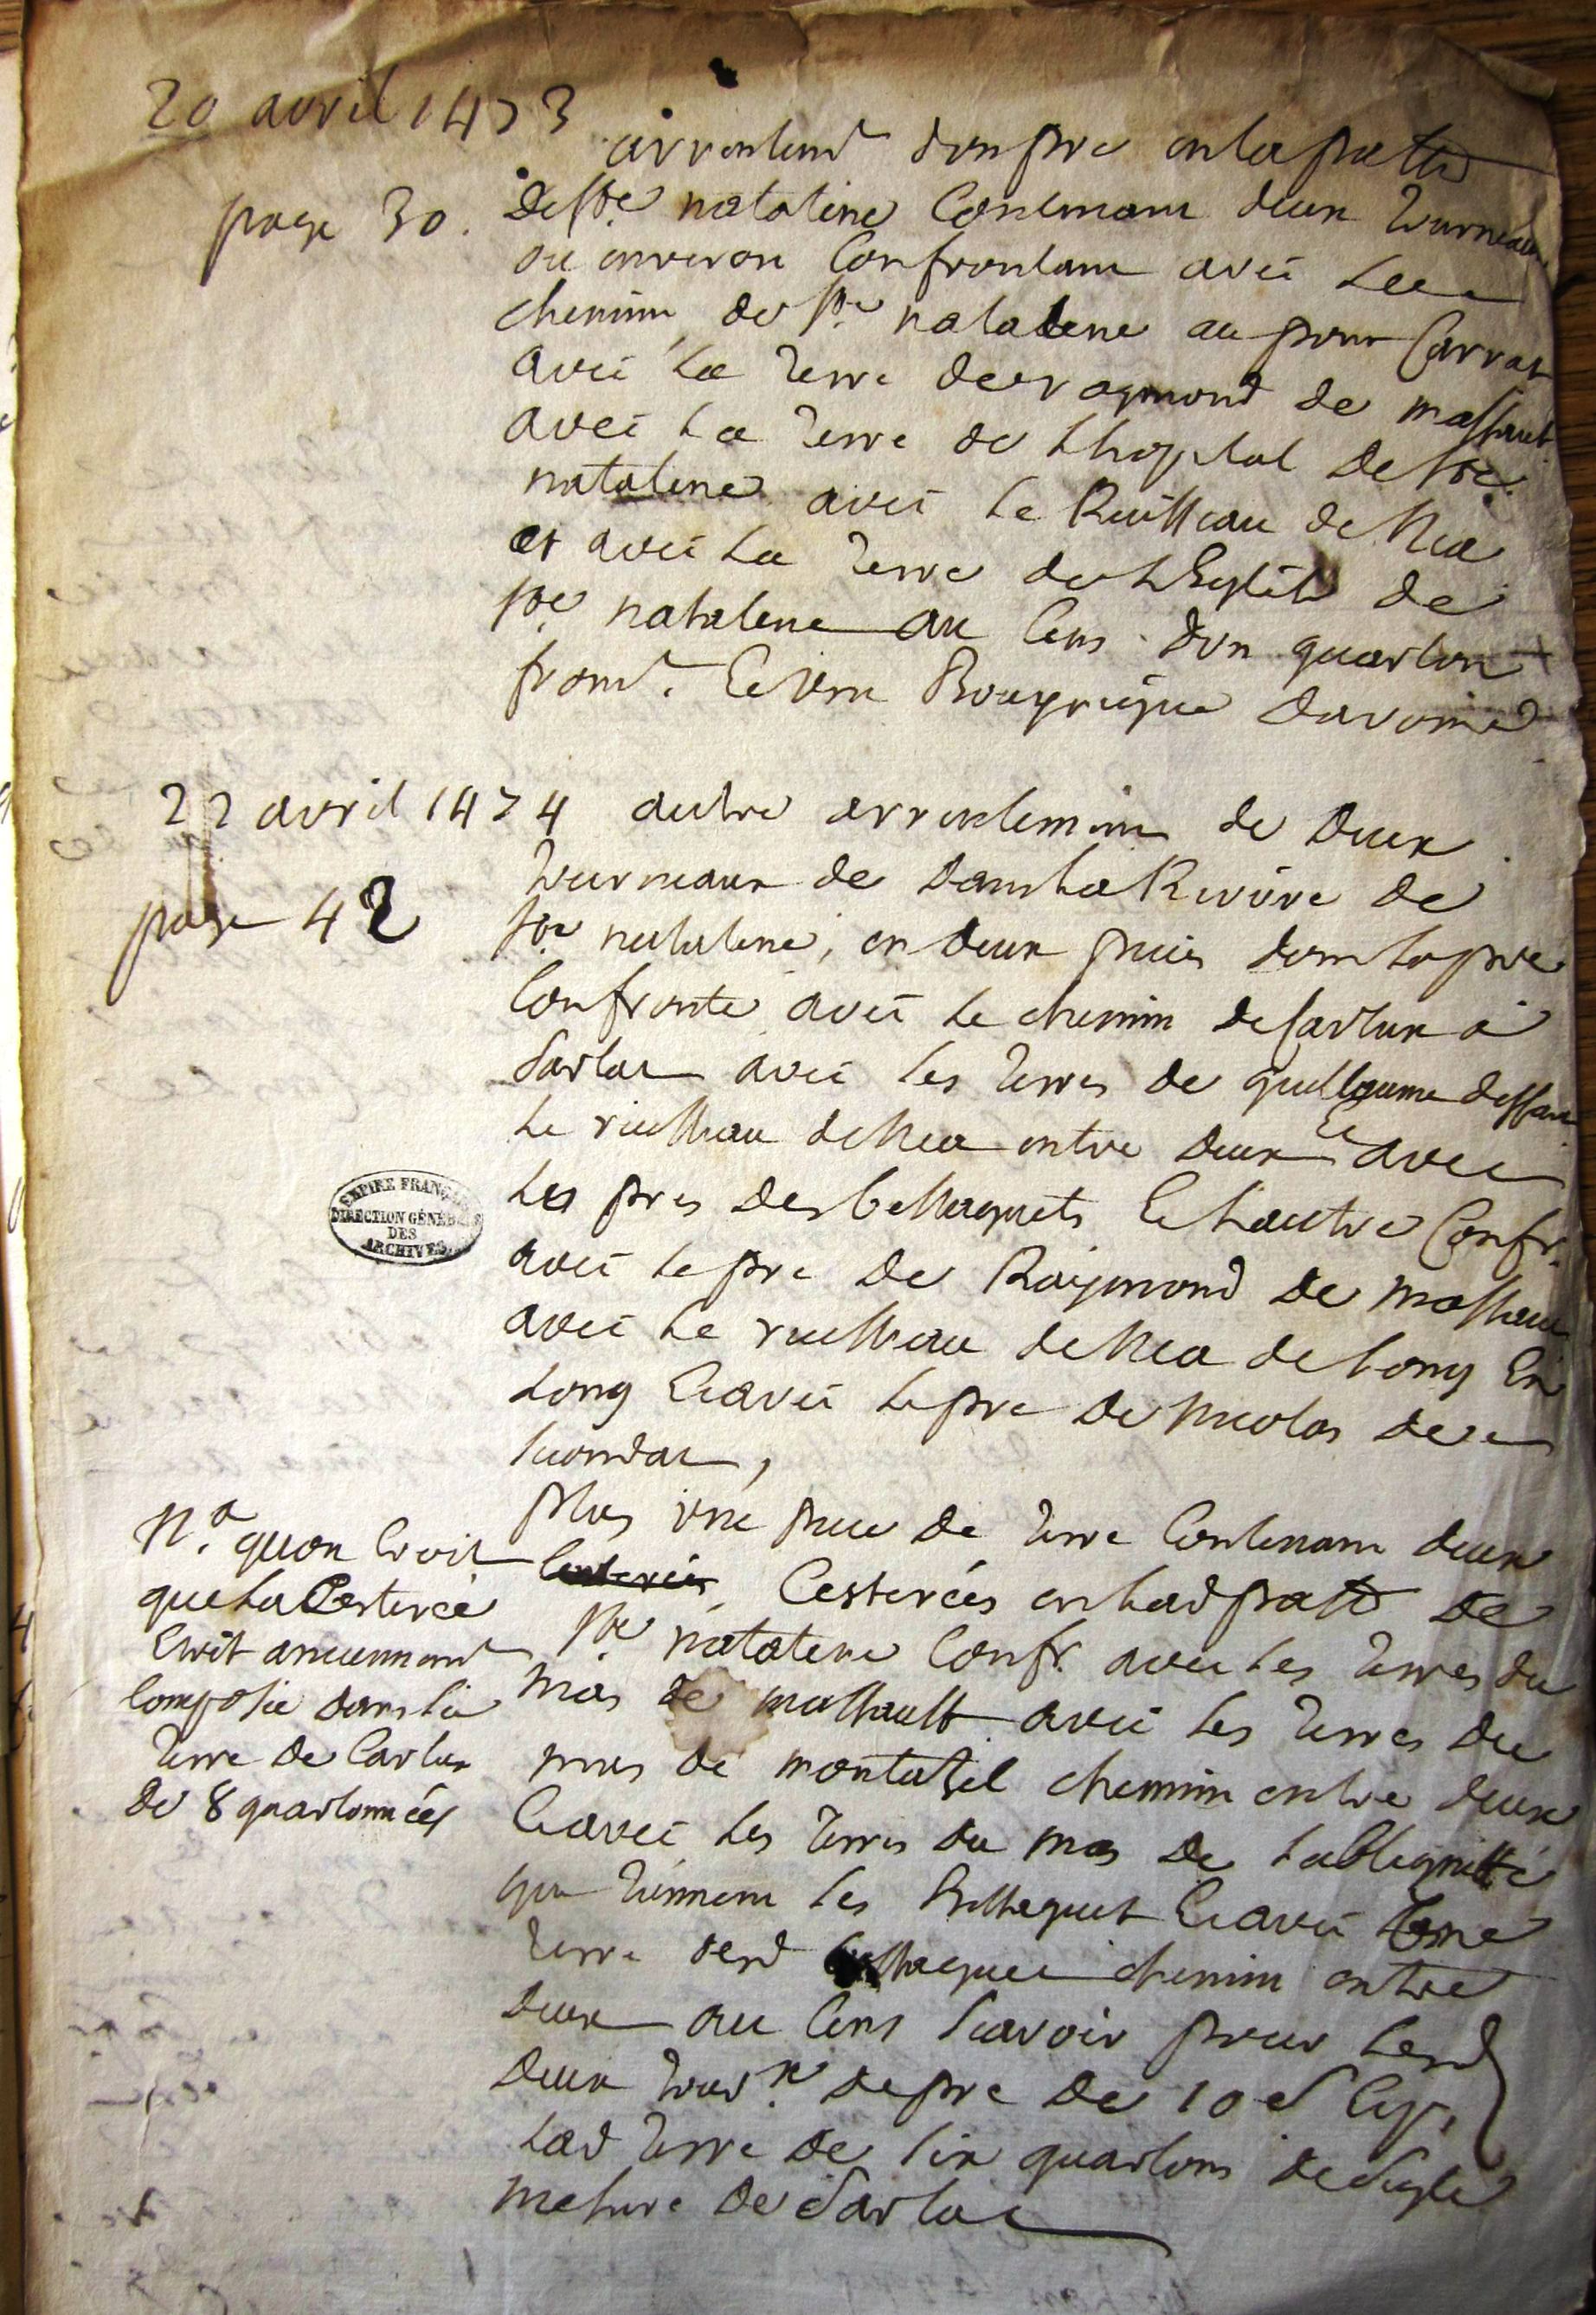 20 avril 1473
arrentemt d'un pre en la patte
page 30.
de ste natalene Contenant deux Journaux
ou environ Confrontant avec le
chemin de ste natalene au pont Carrat
avec la terre de raymond de massaut
avec la terre de l'hopital de ste
natalene avec le Ruisseau de Nea
et avec la terre de l'Eglise de
ste natalene au Cens d'un quarton
from.t Et une davoine
22 avril 1474
autre arrentement de deux
page 42
Journaux de dans la Riviere de
ste natalene, en deux pieces dont la pre
Confronte avec le chemin de Carlux a
Sarlat avec les terres de guillaume
le ruisseau de Nea entre deux Et avec
EMPIRE FRANÇAIS
DIRECTION GÉNÉRALE
DES
ARCHIVES
les pres des Et l'autre Confr.
avec le pre de Raymond de Massaut
avec le ruisseau de Nea de long En
long Et avec le pre de Nicolas de
plus une piece de terre Contenant deux
Cesterées en lad patte de
ste natalene Confr. avec les terres du
mas de massault avec les terres du
mas de chemin entre deux
Et avec les terres du mas de
que tiennent les Et avec
terre desd chemin entre
deux au Cens scavoir pour lesd
deux Jour.x de pre de 10 d
lad terre de six quartons de seigle
mesure de Sarlat
N.a quon Croit
que la Cesterée
Etoit anciennemt
Composée dans la
terre de Carlux
de 8 quartonnées